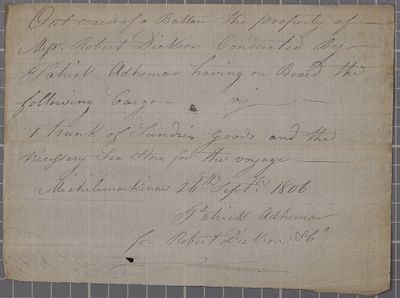 Outward of a Battau the property of
Msr. Robert Dickson Conducted By
Patrick Adhemar having on Board the
following Cargo viz
1 trunk of Sundries Goods and the
necessary Sea Stores for the voyage
Michilimackinac 26th Septr. 1806
Patrick Adhemar
for Robert Dickson & Co